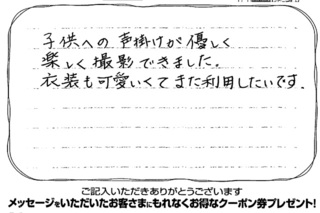 子供への声掛けが優しく
楽しく撮影できました。
衣装も可愛いくてまた利用したいです。
ご記入いただきありがとうございます
メッセージをいただいたお客さまにもれなくお得なクーポン券プレゼント!